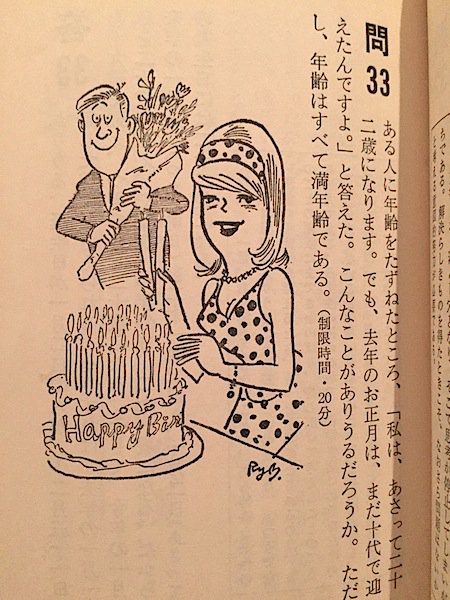 ちである。解決らしきものを得たときこそ、
問33
ある人に年齢をたずねたところ、「私は、あさって二十
二歳になります。でも、去年のお正月は、まだ十代で迎
えたんですよ。」と答えた。こんなことがありうるだろうか。ただ
し、年齢はすべて満年齢である。(制限時間・20分)
Happy Bir